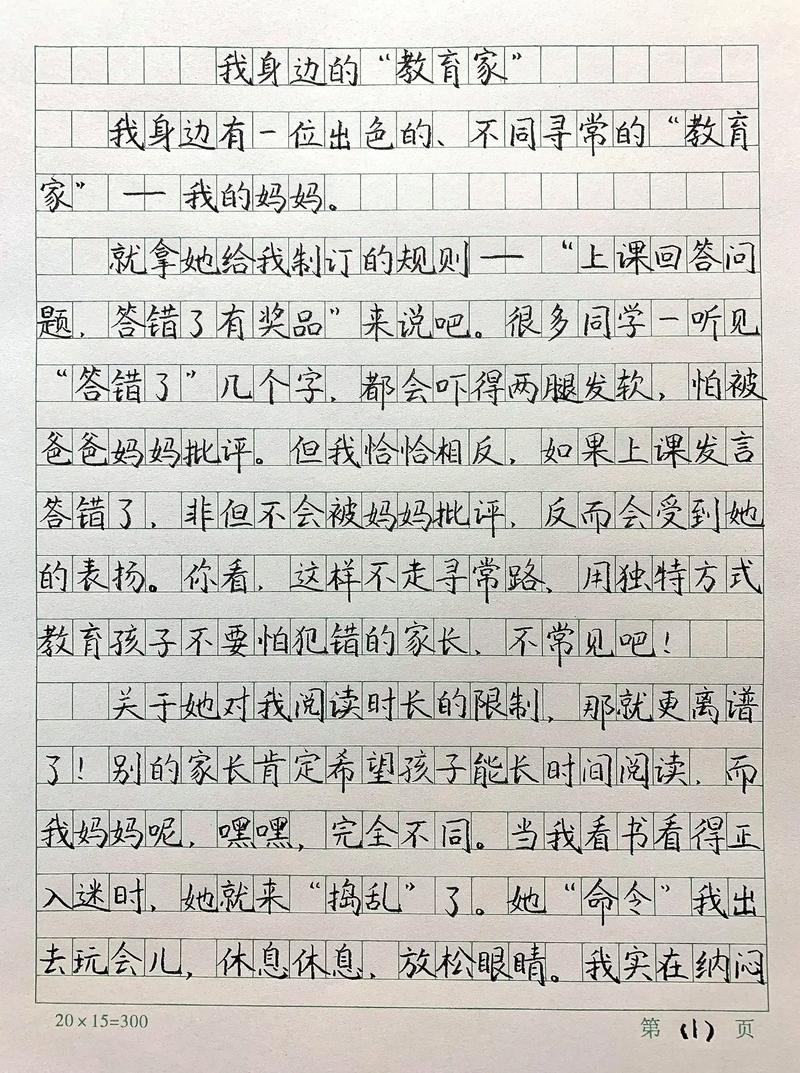 我身边的“教育家”
我身边有一位出色的、不同寻常的“教育
家”——我的妈妈。
就拿她给我制订的规则——“上课回答问
题，答错了有奖品”来说吧。很多同学一听见
“答错了”几个字，都会吓得两腿发软，怕被
爸爸妈妈批评。但我恰恰相反，如果上课发言
答错了，非但不会被妈妈批评，反而会受到她
的表扬。你看，这样不走寻常路、用独特方式
教育孩子不要怕犯错的家长，不常见吧！
关于她对我阅读时长的限制，那就更离谱
了！别的家长肯定希望孩子能长时间阅读，而
我妈妈呢，嘿嘿，完全不同。当我看书看得正
入迷时，她就来“捣乱”了。她“命令”我出
去玩会儿，休息休息，放松眼睛。我实在纳闷
20×15=300
第(1)页